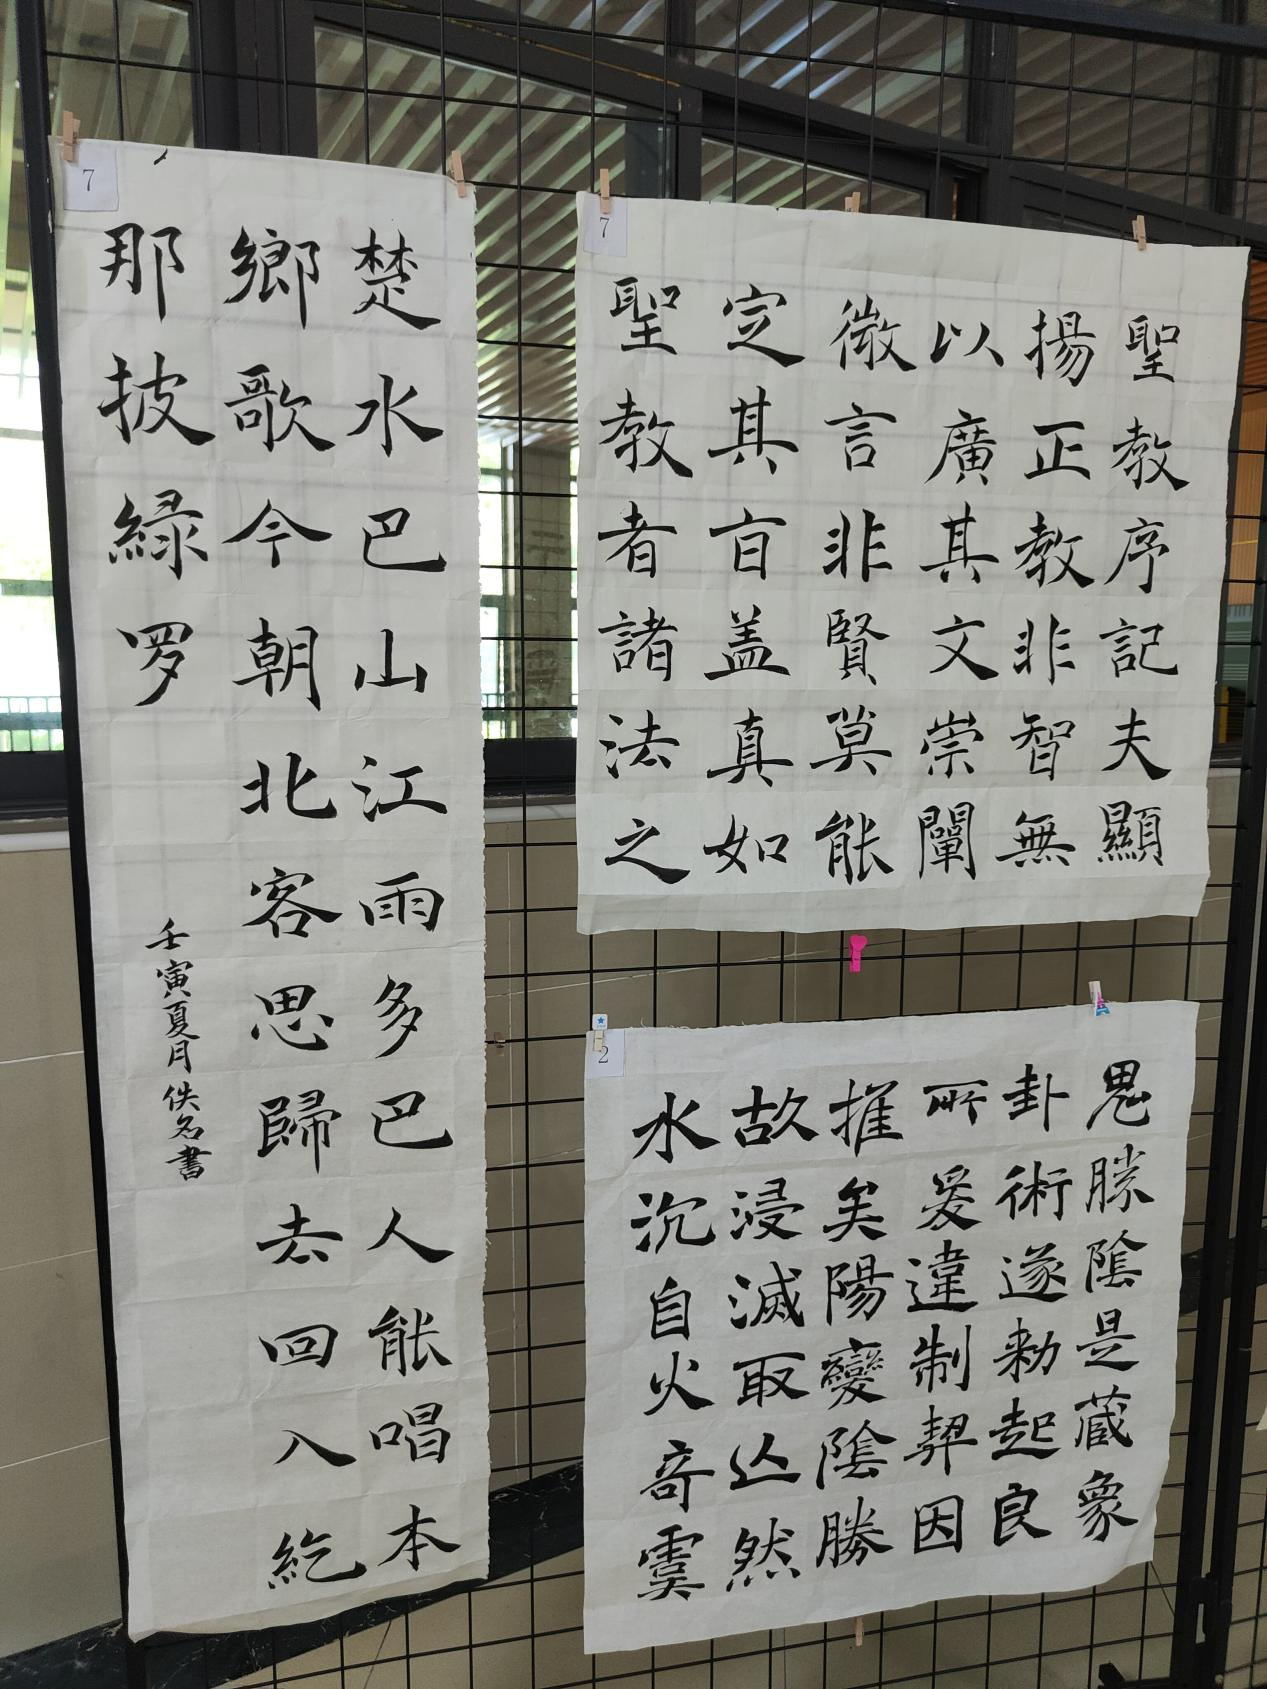 7
楚水巴山江雨多巴人能唱本
鄉歌今朝北客思歸去回入紇
那披緑罗
壬寅夏月佚名書
7
聖教序記夫顯
揚正教非智無
以廣其文崇闡
微言非賢莫能
定其旨盖真如
聖教者諸法之
2
鬼勝陰是蔵象
卦術遂勑起良
所爰違制契因
推矣陽變陰勝
故浸滅取亾然
水沉自火奇